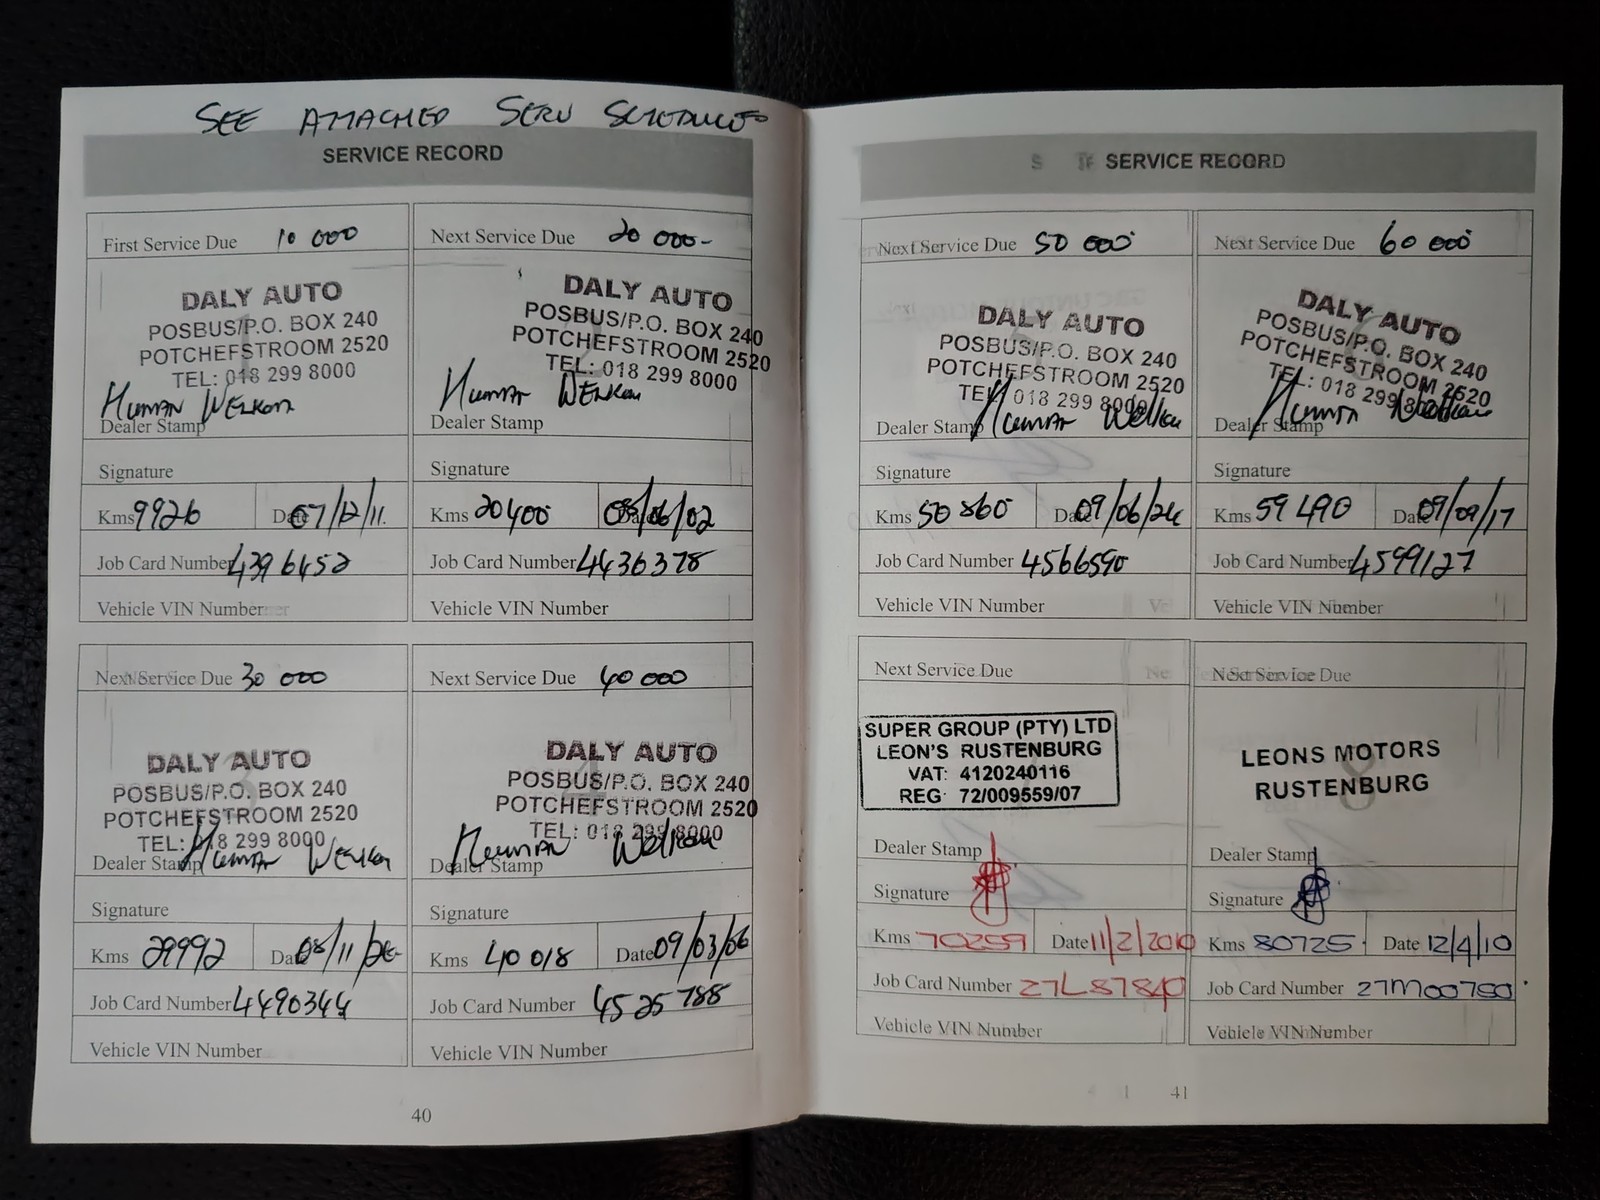 SEE ATTACHED SERV SCHEDULES
SERVICE RECORD
First Service Due 10 000
DALY AUTO
POSBUS/P.O. BOX 240
POTCHEFSTROOM 2520
TEL: 018 299 8000
HUMAN WELKOM
Dealer Stamp
Signature
Kms 9926 Date 07/12/11.
Job Card Number 4396452
Vehicle VIN Number
Next Service Due 20 000-
DALY AUTO
POSBUS/P.O. BOX 240
POTCHEFSTROOM 2520
TEL: 018 299 8000
HUMAN WELKOM
Dealer Stamp
Signature
Kms 20400 Date 08/06/02
Job Card Number 4436378
Vehicle VIN Number
Next Service Due 30 000
DALY AUTO
POSBUS/P.O. BOX 240
POTCHEFSTROOM 2520
TEL: 018 299 8000
HUMAN WELKOM
Dealer Stamp
Signature
Kms 29992 Date 08/11/
Job Card Number 4490344
Vehicle VIN Number
Next Service Due 40 000
DALY AUTO
POSBUS/P.O. BOX 240
POTCHEFSTROOM 2520
TEL: 018 299 8000
HUMAN Welkom
Dealer Stamp
Signature
Kms 40 018 Date 09/03/06
Job Card Number 4525788
Vehicle VIN Number
40
SERVICE RECORD
Next Service Due 50 000
DALY AUTO
POSBUS/P.O. BOX 240
POTCHEFSTROOM 2520
TEL: 018 299 8000
HUMAN Welkom
Dealer Stamp
Signature
Kms 50 860 Date 09/06/24
Job Card Number 4566590
Vehicle VIN Number
Next Service Due 60 000
DALY AUTO
POSBUS/P.O. BOX 240
POTCHEFSTROOM 2520
TEL: 018 299 8000
HUMAN Welkom
Dealer Stamp
Signature
Kms 59 490 Date 09/09/17
Job Card Number 4599127
Vehicle VIN Number
Next Service Due
SUPER GROUP (PTY) LTD
LEON'S RUSTENBURG
VAT: 4120240116
REG: 72/009559/07
Dealer Stamp
Signature
Kms 70259 Date 11/2/2010
Job Card Number 27L87840
Vehicle VIN Number
Next Service Due
8
LEONS MOTORS
RUSTENBURG
Dealer Stamp
Signature
Kms 80725 Date 12/4/10
Job Card Number 27M00750
Vehicle VIN Number
41